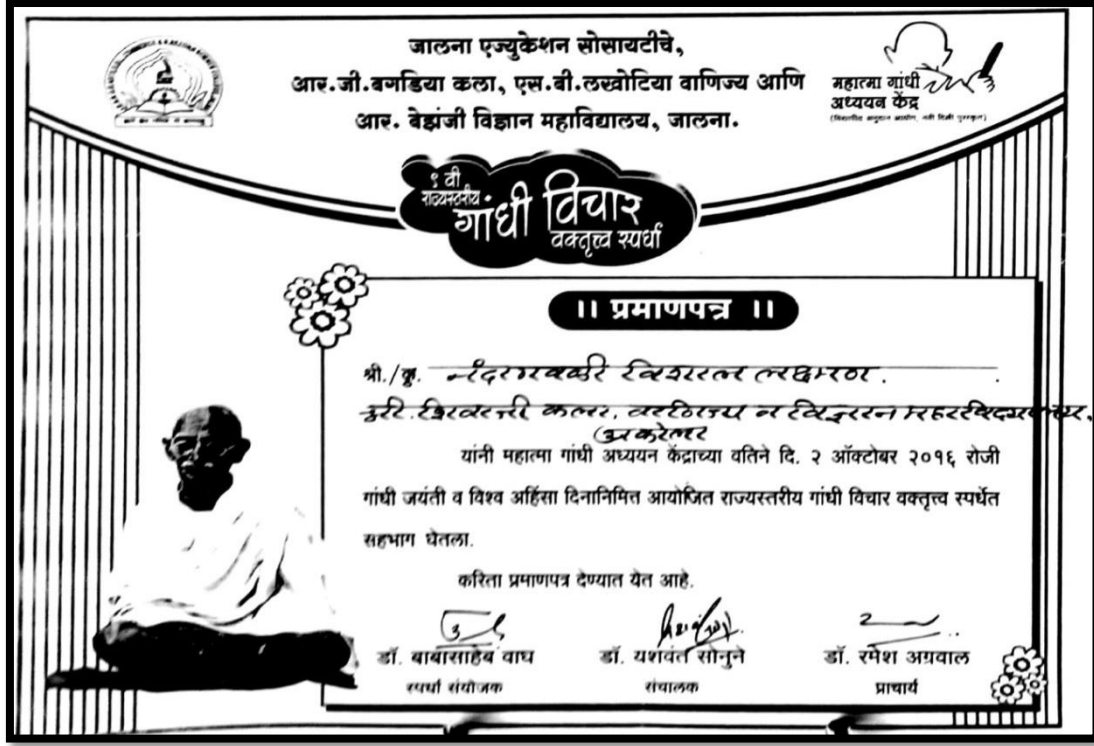 जालना एज्युकेशन सोसायटीचे,
आर.जी.बगडिया कला, एस.बी.लखोटिया वाणिज्य आणि
आर. बेझंजी विज्ञान महाविद्यालय, जालना.
महात्मा गांधी
अध्ययन केंद्र
(विद्यापीठ अनुदान आयोग, नवी दिल्ली पुरस्कृत)
९ वी
राज्यस्तरीय
गांधी विचार
वक्तृत्त्व स्पर्धा
।। प्रमाणपत्र ।।
श्री./कु. नंदागवळी विशाल लक्ष्मण.
श्री. शिवाजी कला, वाणिज्य व विज्ञान महाविद्यालय,
अकोला
यांनी महात्मा गांधी अध्ययन केंद्राच्या वतिने दि. २ ऑक्टोबर २०१६ रोजी
गांधी जयंती व विश्व अहिंसा दिनानिमित्त आयोजित राज्यस्तरीय गांधी विचार वक्तृत्त्व स्पर्धेत
सहभाग घेतला.
करिता प्रमाणपत्र देण्यात येत आहे.
डॉ. बाबासाहेब वाघ डॉ. यशवंत सोनुने डॉ. रमेश अग्रवाल
स्पर्धा संयोजक संचालक प्राचार्य